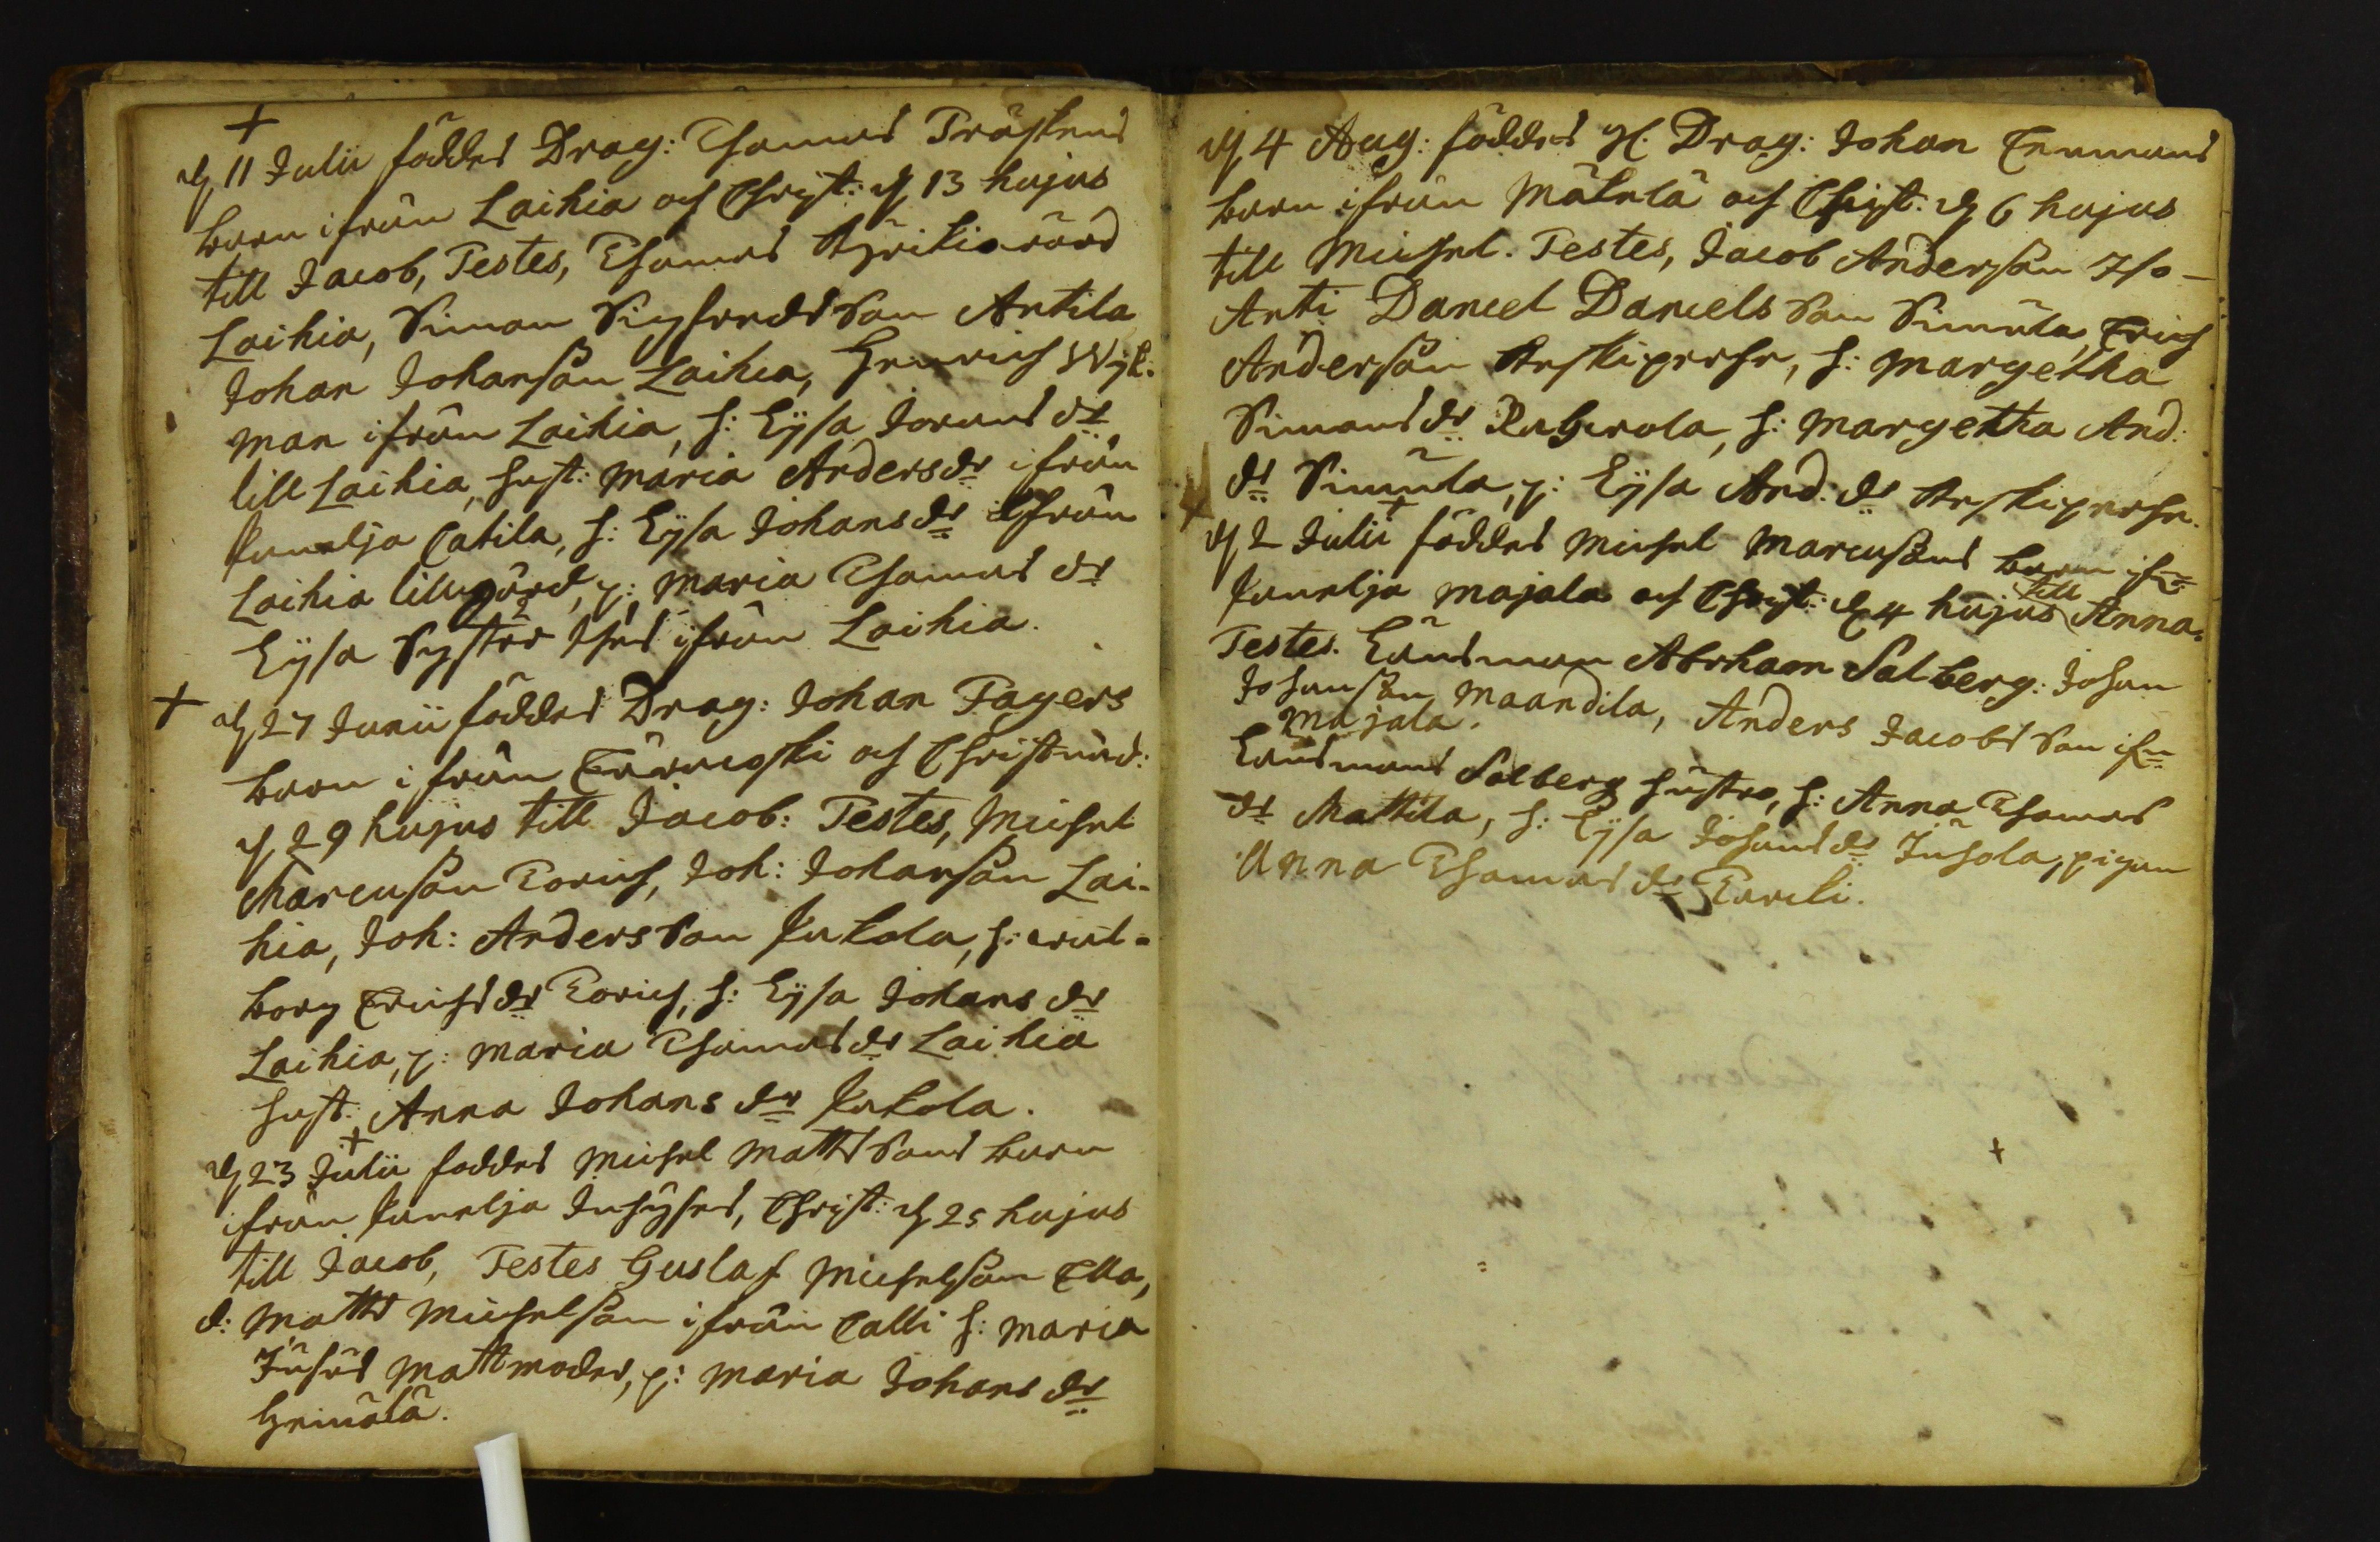 +
d 11 Julii föddes Drag: Thomas Träskens
barn ifrån Laihia och Christ: d 13 hujus
till Jacob, Testes, Thomas
Laihia, Simon Sigfredsson Antila
Johan Johansson Laihia, Henrich Wijk:
man ifrån Laihia, h: Lijsa Jorans dr
lill Laihia, hust: Maria Anders dr ifrån
Catila, h: Lijsa Johans dr ifrån
Laihia lillegård, p: Maria Thomas dr
Lijsa Syster thes ifrån Laihia.
+ d 27 Junii föddes Drag: Johan Fagers
barn ifrån och Christnad:
d 29 hujus till Jacob: Testes, Michel
Marcusson Torich, Joh: Johansson Lai-
hia, Joh: Andersson Jukola, h: wal-
borg Erichs dr Torich, h: Lijsa Johans dr
Laihia, p: Maria Thomas dr Laihia
hust: Anna Johans dr Jukola.
+
d 23 Julii foddes Michel Matts Sons barn
ifrån Christ: d 25 hujus
till Jacob, Testes Gustaf Michelsson Ella,
d: Matts Michelsson ifrån Calli h: Maria
matmoder, p: Maria Johans dr
Heinälä.
d 4 Aug: föddes Drag: Johan
barn ifrån Mäkelä och Christ: d 6 hujus
till Michel. Testes, Jacob Andersson Iso-
Anti Daniel Daniels Son Simula, Erich
Andersson h: Margetha
Simons dr h: Margetha And:
dr Simula, p: Lijsa And: dr
+
d 2 Julii föddes Michel Marcussons barn ifrn
Majala och Christ: d 4 hujus till Anna.
Testes. Länsman Abrham Salberg: Johan
Johansson Maandila, Anders Jacobs Son ifrn
Majala.
Länsmans Salberg hustro, h: Anna Thomas
dr Mattila, h: Lijsa Johans dr pigan
Anna Thomas dr